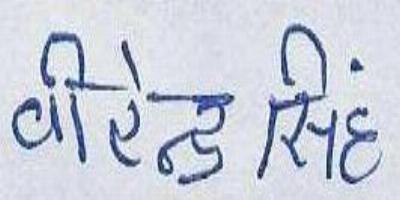 वीरेन्द्र सिंह